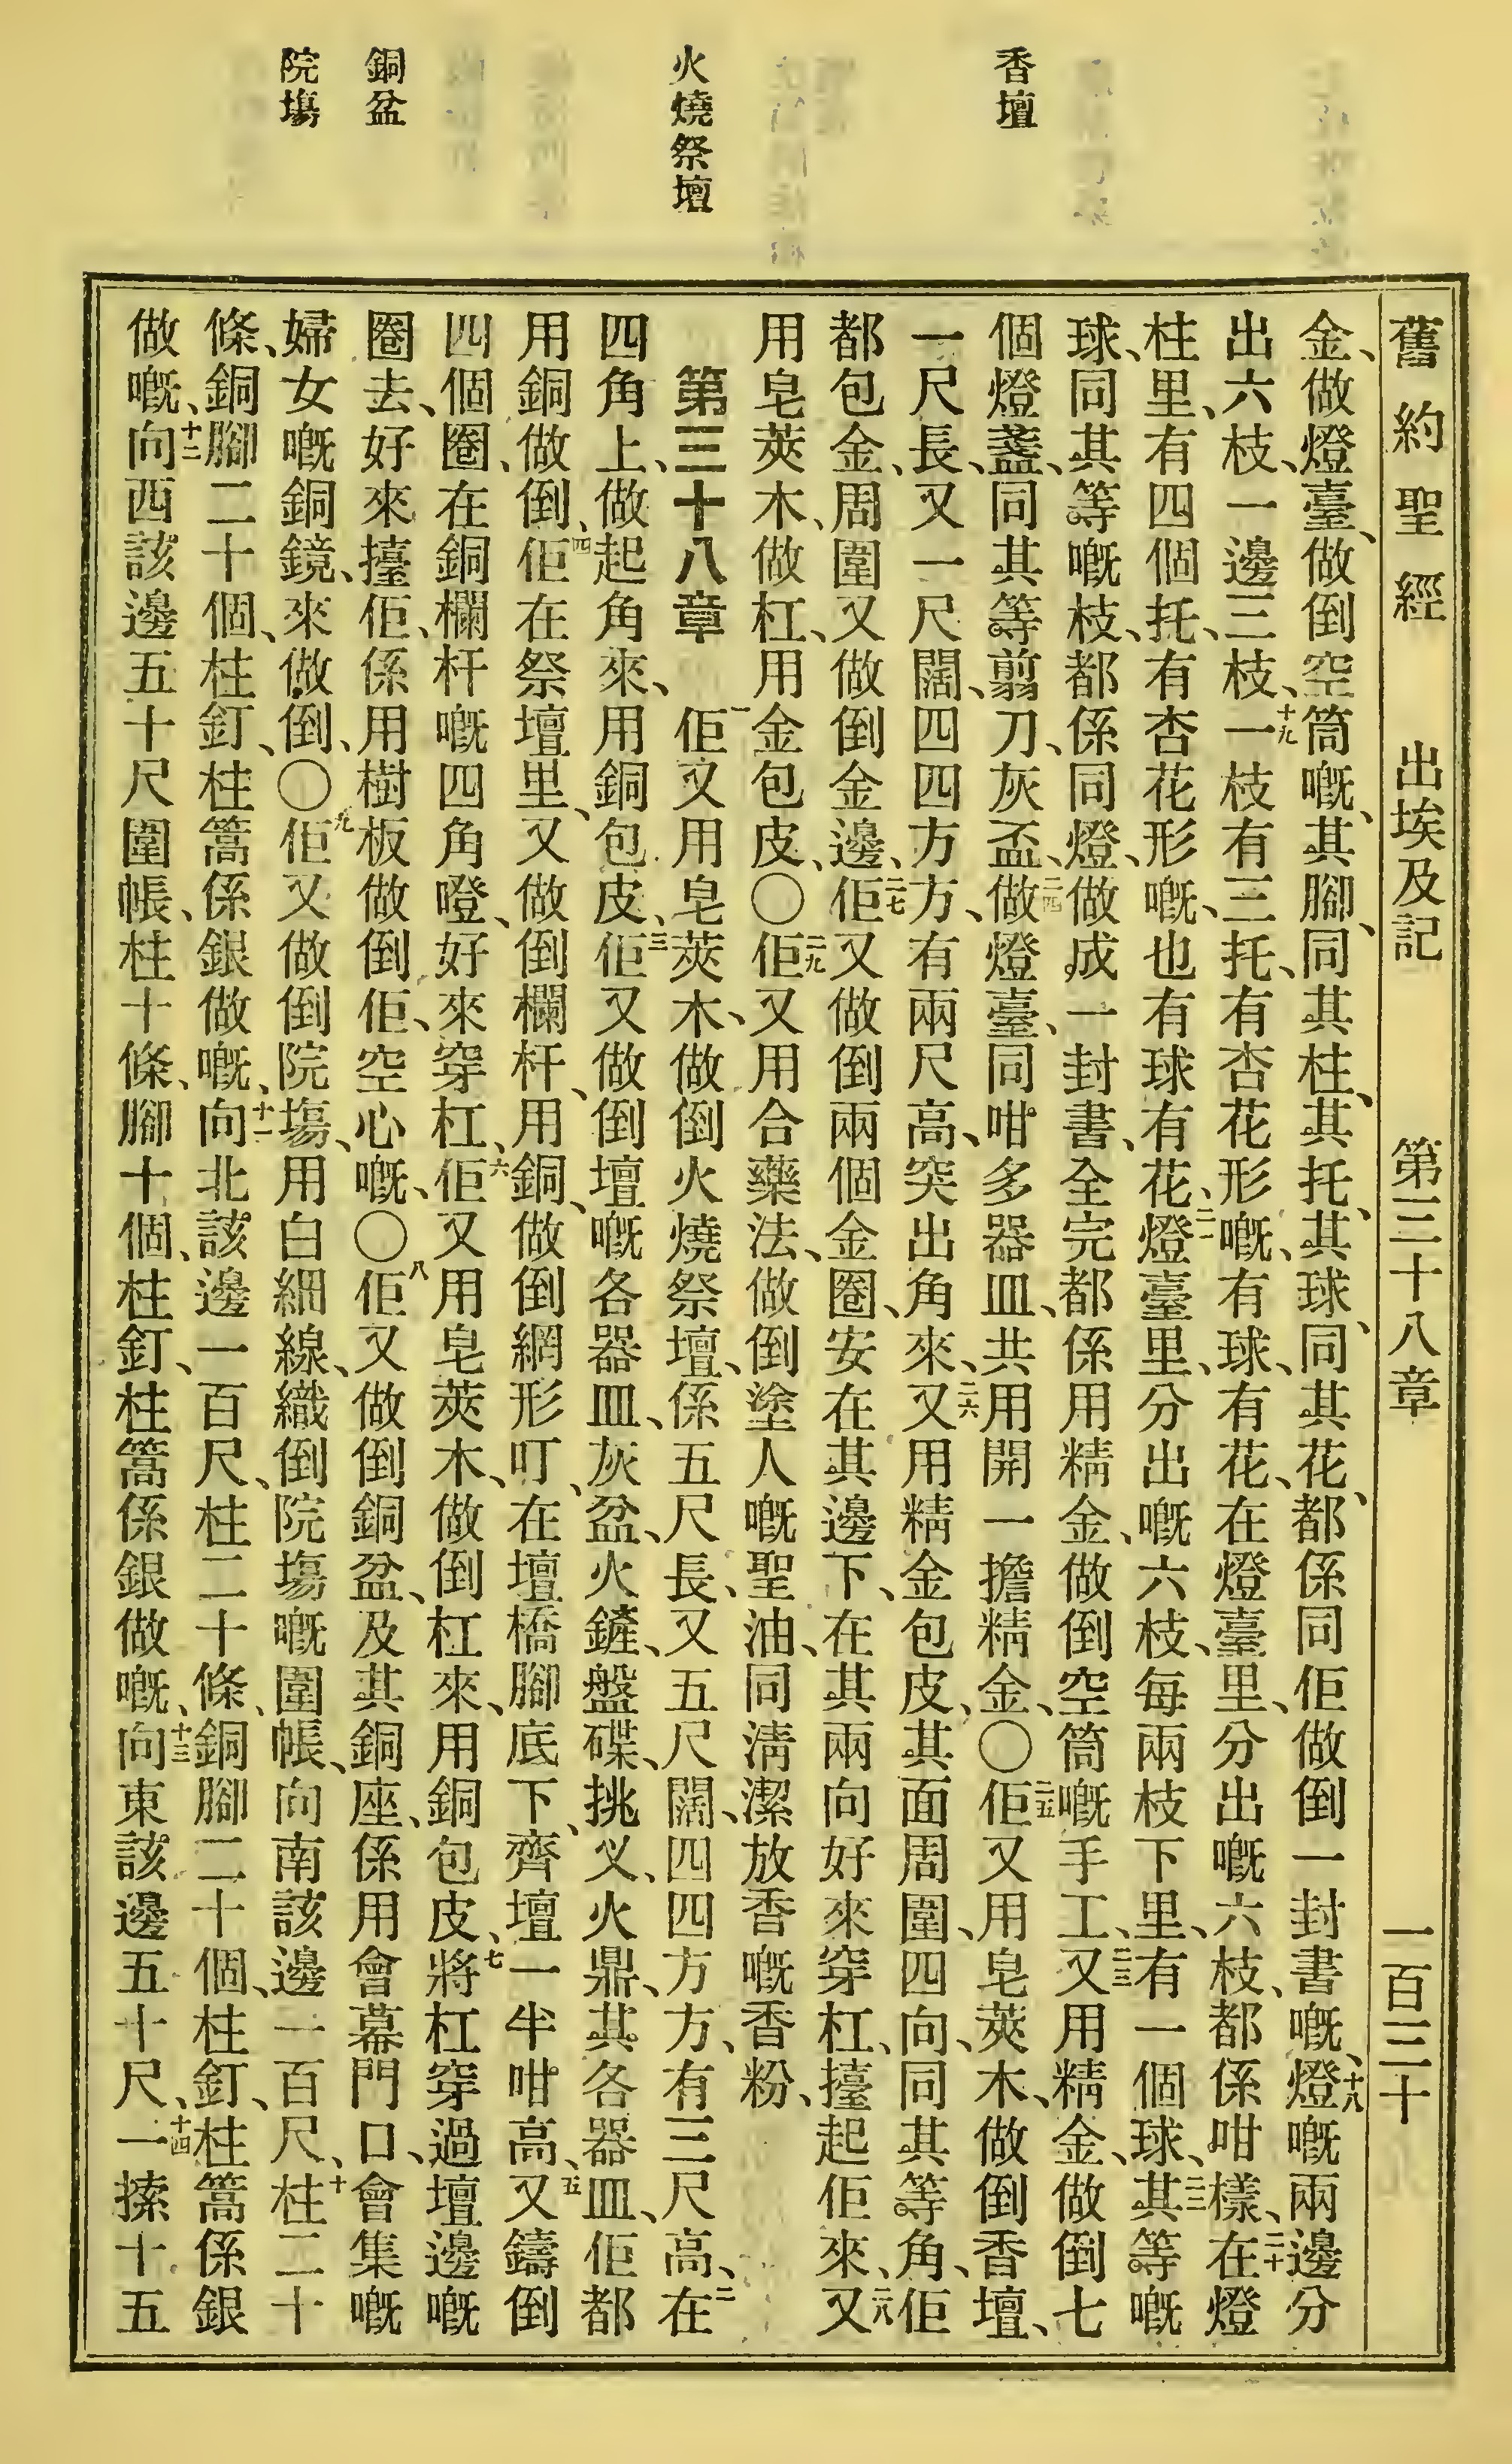 香壇
火燒祭壇
銅盆
院塲
舊約聖經 出埃及記 第三十八章 一百三十
金、做燈臺、做倒空筒嘅、其腳、同其柱、其托、其球、同其花、都係同佢做倒一封書嘅、十八燈嘅兩邊分
出六枝、一邊三枝、十九一枝有三托、有杏花形嘅、有球、有花、在燈臺里、分出嘅六枝、都係咁樣、二十在燈
柱里、有四個托、有杏花形嘅、也有球有花、二一燈臺里、分出嘅六枝、每兩枝下里、有一個球、二二其等嘅
球、同其等嘅枝、都係同燈、做成一封書、全完都係用精金、做倒空筒嘅手工、二三又用精金、做倒七
個燈盞、同其等翦刀、灰盃、二四做燈臺、同咁多器皿、共用開一擔精金、〇二五佢又用皂莢木、做倒香壇、
一尺長、又一尺闊、四四方方、有兩尺高、突出角來、二六又用精金包皮、其面周圍、四向、同其等角、佢
都包金、周圍又做倒金邊、二七佢又做倒兩個金圈、安在其邊下、在其兩向好來穿杠、擡起佢來、二八又
用皂莢木、做杠、用金包皮、〇二九佢又用合藥法、做倒塗人嘅聖油、同清潔放香嘅香粉、
第三十八章 一佢又用皂莢木、做倒火燒祭壇、係五尺長、又五尺闊、四四方方、有三尺高、二在
四角上、做起角來、用銅包皮、三佢又做倒壇嘅各器皿、灰盆、火鏟、盤碟、挑义、火鼎、其各器皿、佢都
用銅做倒、四佢在祭壇里、又做倒欄杆、用銅、做倒網形叮、在壇橋腳底下、齊壇一半咁高、五又鑄倒
四個圈、在銅欄杆嘅四角嶝、好來穿杠、六佢又用皂莢木、做倒杠來、用銅包皮、七將杠穿過壇邊嘅
圈去、好來擡佢、係用樹板做倒佢、空心嘅、〇八佢又做倒銅盆、及其銅座、係用會幕門口、會集嘅
婦女嘅銅鏡、來做倒、〇九佢又做倒院塲、用白細線、織倒院塲嘅圍帳、向南該邊一百尺、十柱二十
條、銅腳二十個、柱釘、柱篙係銀做嘅、十一向北該邊一百尺、柱二十條、銅腳二十個、柱釘、柱篙係銀
做嘅、十二向西該邊五十尺圍帳、柱十條、腳十個、柱釘、柱篙係銀做嘅、十三向東該邊五十尺、十四一㨞十五